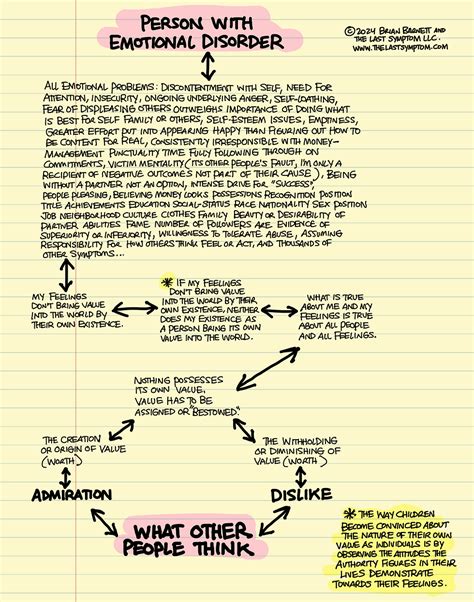 PERSON WITH
EMOTIONAL DISORDER
©2024 BRIAN BARNETT AND
THE LAST SYMPTOM LLC.
WWW.THELASTSYMPTOM.COM
ALL EMOTIONAL PROBLEMS: DISCONTENTMENT WITH SELF, NEED FOR
ATTENTION, INSECURITY, ONGOING UNDERLYING ANGER, SELF-LOATHING,
FEAR OF DISPLEASING OTHERS OUTWEIGHS IMPORTANCE OF DOING WHAT
IS BEST FOR SELF FAMILY OR OTHERS, SELF-ESTEEM ISSUES, EMPTINESS,
GREATER EFFORT PUT INTO APPEARING HAPPY THAN FIGURING OUT HOW TO
BE CONTENT FOR REAL, CONSISTENTLY IRRESPONSIBLE WITH MONEY-
MANAGEMENT PUNCTUALITY TIME FULLY FOLLOWING THROUGH ON
COMMITMENTS, VICTIM MENTALITY (IT'S OTHER PEOPLE'S FAULT, I'M ONLY A
RECIPIENT OF NEGATIVE OUTCOMES NOT PART OF THEIR CAUSE), BEING
WITHOUT A PARTNER NOT AN OPTION, INTENSE DRIVE FOR "SUCCESS",
PEOPLE PLEASING, BELIEVING MONEY LOOKS POSSESSIONS RECOGNITION POSITION
TITLE ACHIEVEMENTS EDUCATION SOCIAL-STATUS RACE NATIONALITY SEX POSITION
JOB NEIGHBORHOOD CULTURE CLOTHES FAMILY BEAUTY OR DESIRABILITY OF
PARTNER ABILITIES FAME NUMBER OF FOLLOWERS ARE EVIDENCE OF
SUPERIORITY OR INFERIORITY, WILLINGNESS TO TOLERATE ABUSE, ASSUMING
RESPONSIBILITY FOR HOW OTHERS THINK FEEL OR ACT, AND THOUSANDS OF
OTHER SYMPTOMS...
MY FEELINGS
DON'T BRING VALUE
INTO THE WORLD BY
THEIR OWN EXISTENCE.
* IF MY FEELINGS
DON'T BRING VALUE
INTO THE WORLD BY THEIR
OWN EXISTENCE, NEITHER
DOES MY EXISTENCE AS
A PERSON BRING ITS OWN
VALUE INTO THE WORLD.
WHAT IS TRUE
ABOUT ME AND MY
FEELINGS IS TRUE
ABOUT ALL PEOPLE
AND ALL FEELINGS.
NOTHING POSSESSES
ITS OWN VALUE.
VALUE HAS TO BE
ASSIGNED OR "BESTOWED."
THE CREATION
OR ORIGIN OF VALUE
(WORTH)
THE WITHHOLDING
OR DIMINISHING OF
VALUE (WORTH)
ADMIRATION
DISLIKE
WHAT OTHER
PEOPLE THINK
* THE WAY CHILDREN
BECOME CONVINCED ABOUT
THE NATURE OF THEIR OWN
VALUE AS INDIVIDUALS IS BY
OBSERVING THE ATTITUDES THE
AUTHORITY FIGURES IN THEIR
LIVES DEMONSTRATE
TOWARDS THEIR FEELINGS.